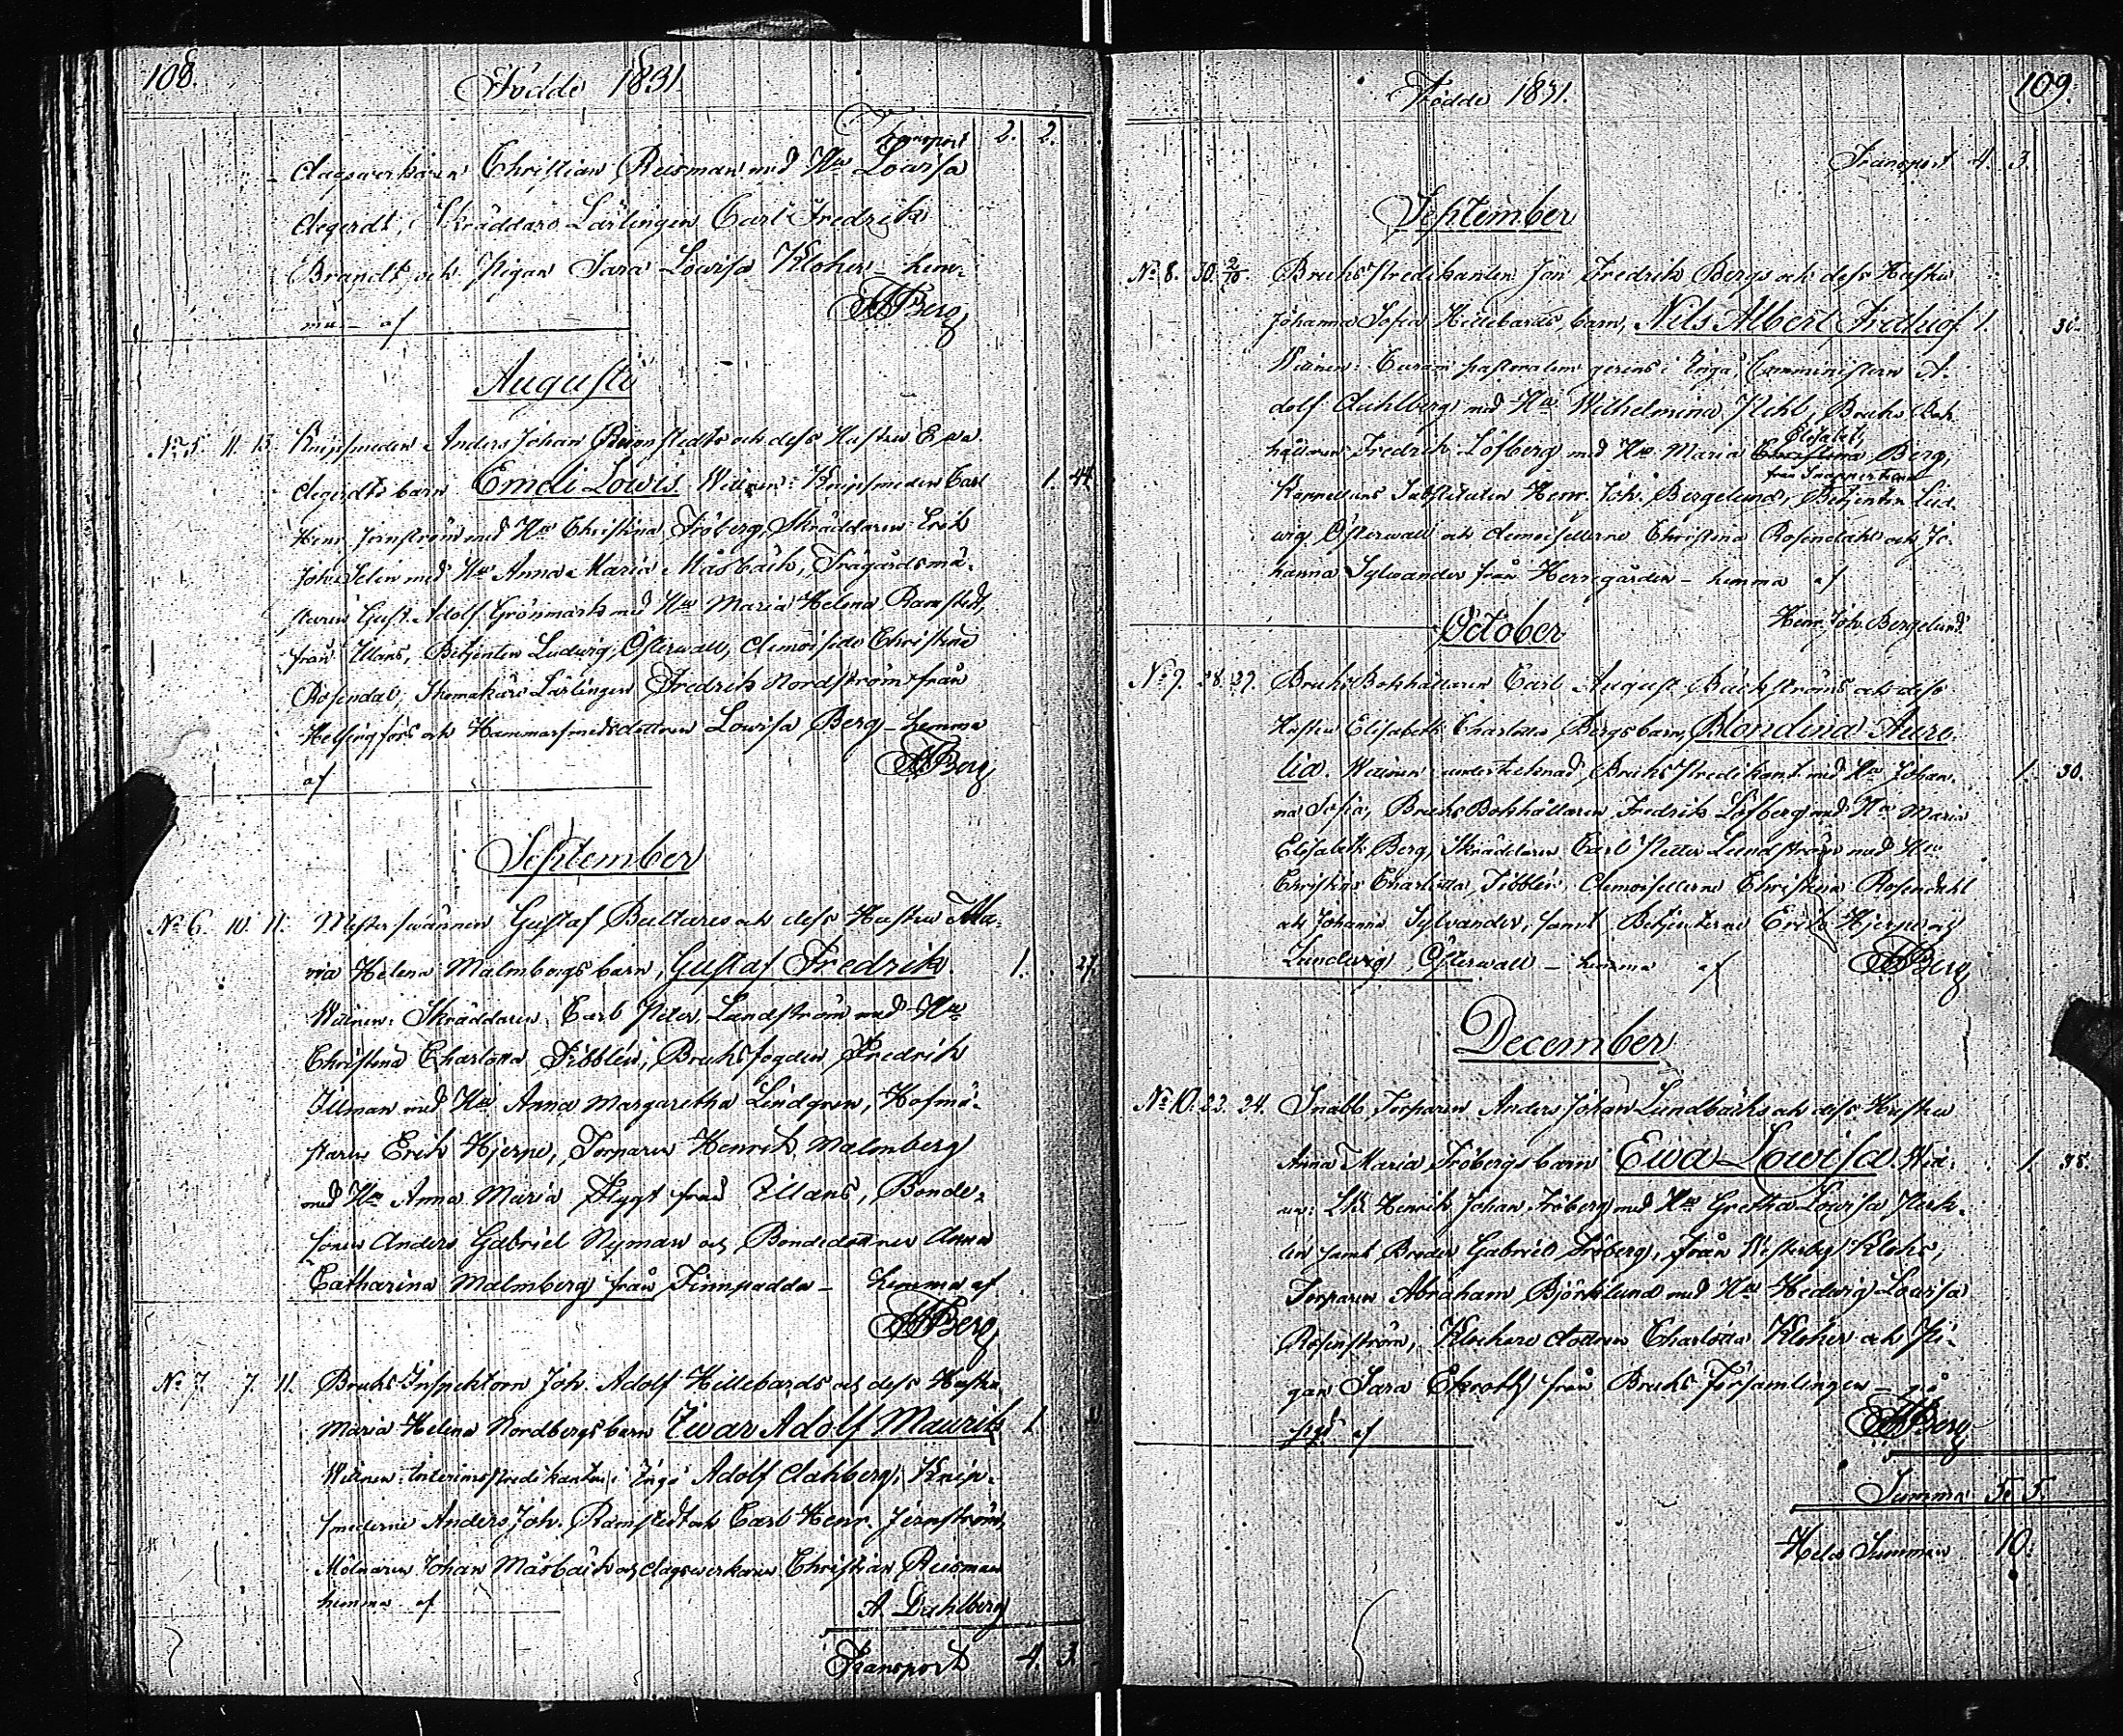 108.
Födde 1831
Transport 2. 2.
Christian Reisman med Hu Lovisa
Skräddare Lärlingen Carl Fredrik
Brandt, och Pigan Sara Lowisa Kloker - hem-
ma - af JFBerg
Augusti
No 5. 11. 13. Knipsmeden Anders Johan Ramstedts och dess Hustru Ewa
barn Emeli Lowis. Witnen: Knipsmeden Carl 1. 44.
Henr. Jernström med Hu Christina Fröberg, Skräddaren Erik
Joh. Selin med Hu Anna Maria Måsbäck, Trägårdsmä-
staren Gust. Adolf Grönmark med Hu Maria Helena Ramstedt,
från Billnäs, Betjenten Ludwig Österwall, Demoiselle Christina
Rosendal, Skomakare Lärlingen Fredrik Nordström från
Helsingfors och Hammarsmedsdottren Lowisa Berg - hemma
af JFBerg
September
No 6. 10. 11. Gustaf Bultares och dess Hustru Ma-
ria Helena Malmbergs barn, Gustaf Fredrik. 1. 27.
Witnen: Skräddaren Carl Peter Lundström med Hu
Christina Charlotta Tibblin, Bruksfogden Fredrik
Illman med Hu Anna Margaretha Lindgren, Hofmä-
staren Erik Hjerpe, Torparen Henrik Malmberg
med Hu Anna Maria Flygt från Billnäs, Bonde-
sonen Anders Gabriel Nyman och Bondedottren Anna
Catharina Malmberg från Finnpadda - hemma af
JFBerg
No 7. 7. 11. Bruks Inspektorn Joh. Adolf Hillebards och dess Hustru
Maria Helena Nordbergs barn Iwar Adolf Maurits 1.
Witnen: Interimspredikanten i Ingå Adolf Dahlberg, Knip-
smederne Anders Joh. Ramstedt och Carl Henr. Jernström,
Mölnaren Johan Måsbäck och dagsverkaren Christian Reisman
hemma af A. Dahlberg
Transport 4. 3.
109.
Födde 1831.
Transport 4. 3.
September
No 8. 30. 2/10. Bruks Predikanten Jon Fredrik Bergs och dess Hustru
Johanna Sofia Hillebards barn, Nils Albert 1. 30.
Witnen: Curam pastoralem gerens i Ingå, Comministern A-
dolf Dahlberg med Hu Wilhelmina Pihl, Bruks Bok-
Elisabet,
hållaren Fredrik Löfberg med Hu Maria Christina Berg,
från Snappertuna
Kappellans Substituten Henr. Joh. Bergelund, Betjenten Lud-
wig Österwall och Demoisellerne Christina Rosendahl och Jo-
hanna Sylvander från Herregården - hemma af
Henr. Joh. Bergelund.
October
No 9. 28. 29. Bruks Bokhållaren Carl August Bäckströms och dess
Hustru Elisabeth Charlotta Bergs barn, Blondina Aure-
lia. Witnen: undertecknad Bruks Predikant med Hu Johan- 1. 30.
na Sofia, Bruks Bokhållaren Fredrik Löfberg med Hu Maria
Elisabeth Berg, Skräddaren Carl Petter Lundström med Hu
Christina Charlotta Tibblin, Demoisellerne Christina Rosendahl
och Johanna Sylvander, samt Betjenterne Erik Hjerpe och
Lundwig Österwall - hemma af JFBerg
December
No 10. 23. 24. Torparen Anders Johan Lundbäcks och dess Hustru
Anna Maria Fröbergs barn Ewa Lowisa. Wit- 1. 38.
nen: Henrik Johan Fröberg med Hu Gretha Lowisa
samt Broder Gabriel Fröberg, från Westerby i
Torparen Abraham Björklund med Hu Hedwig Lowisa
Rosenström, Klockare dottren Charlotta Kloker och Pi-
gan Sara Ekroth från Bruks Församlingen -
af JFBerg
Summa 5. 5.
Hela Summan 10.